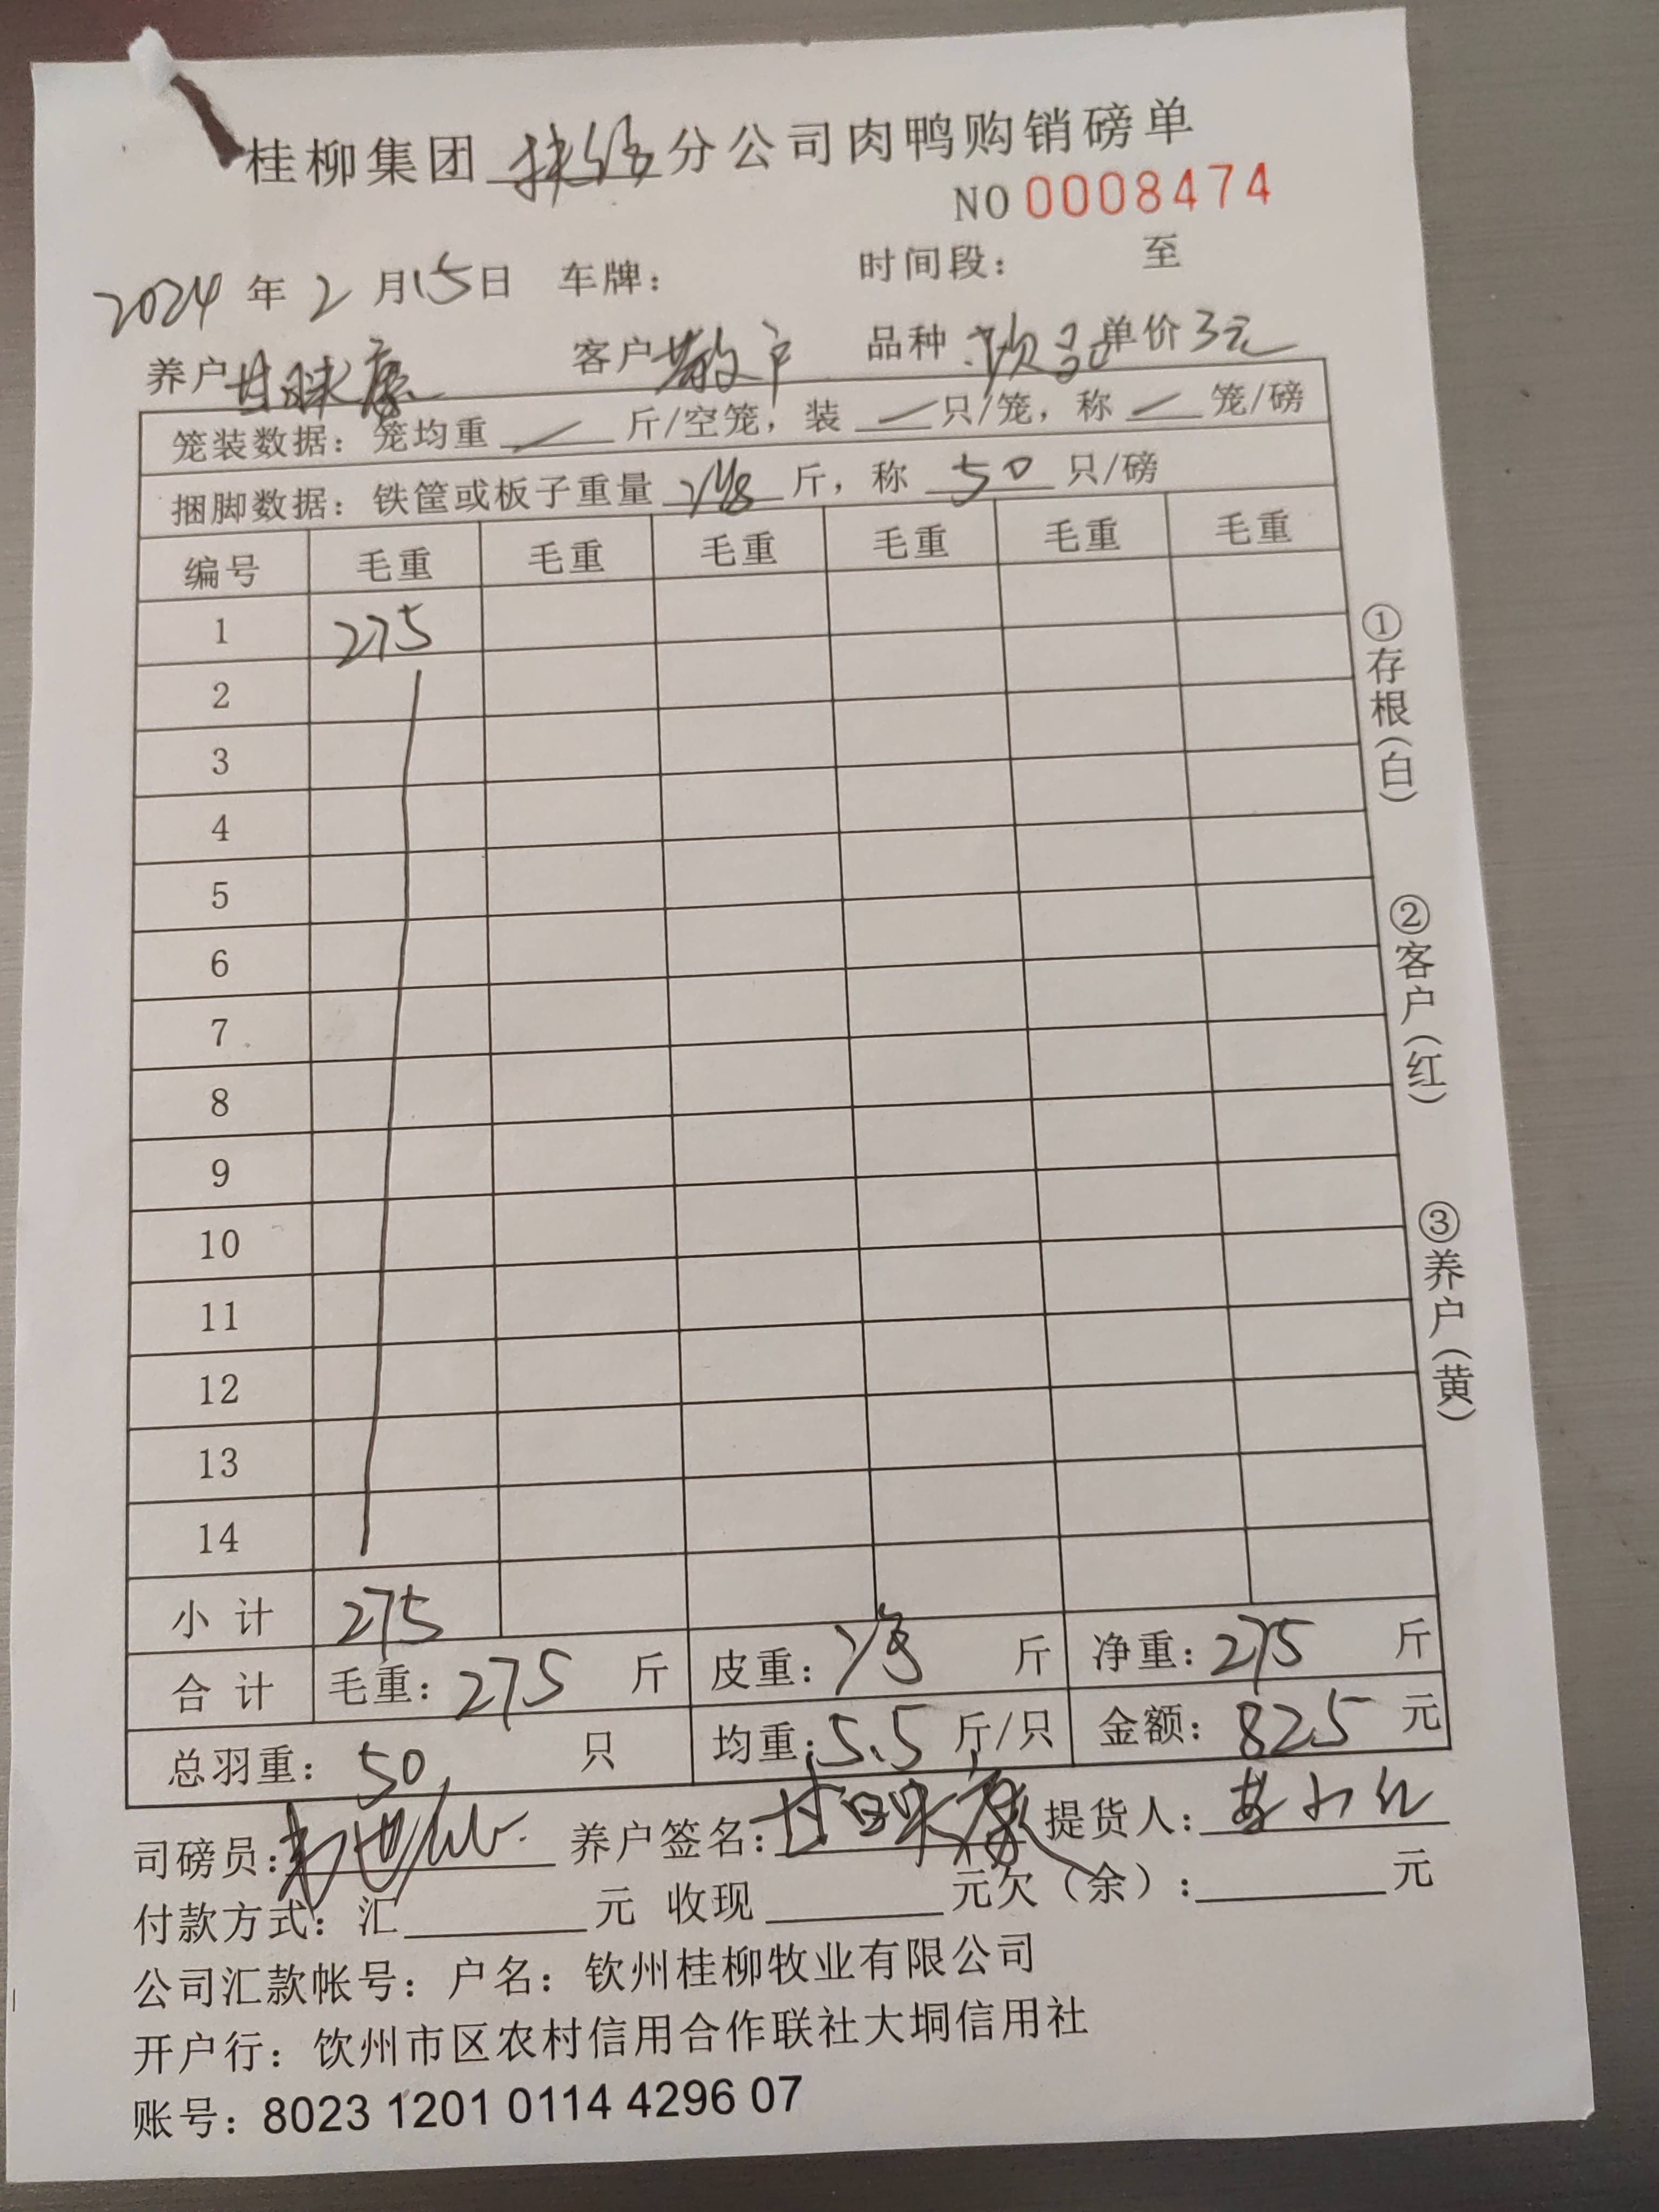 桂柳集团 扶绥 分公司肉鸭购销磅单
NO 0008474
2024 年 2 月 15 日 车牌： 时间段： 至
养户 甘 康 客户 散户 品种 次品 单价 3元
笼装数据：笼均重 / 斤/空笼，装 / 只/笼，称 / 笼/磅
捆脚数据：铁筐或板子重量 斤，称 50 只/磅
编号 毛重 毛重 毛重 毛重 毛重 毛重
1 275
2
3
4
5
6
7
8
9
10
11
12
13
14
小计 275
合计 毛重：275 斤 皮重： 斤 净重：275 斤
总羽重：50 只 均重：5.5 斤/只 金额：825 元
司磅员： 养户签名：甘 康 提货人：
付款方式：汇 元 收现 元欠（余）： 元
公司汇款帐号：户名：钦州桂柳牧业有限公司
开户行：饮州市区农村信用合作联社大垌信用社
账号：8023 1201 0114 4296 07
①存根（白）
②客户（红）
③养户（黄）